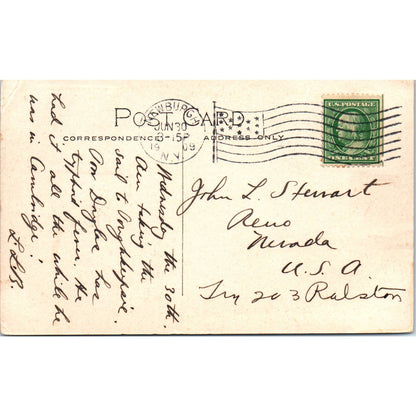 POST CARD
CORRESPONDENCE
ADDRESS ONLY
NEWBURGH
JUN 30
3-15P
1909
N.Y.
U.S. POSTAGE
ONE CENT
John L. Stewart
Reno
Nevada
U.S.A.
Try 203 Ralston
Wednesday the 30th.
Am taking the
sail to Poughkeepsie.
Poor Douglas has
typhoid fever. He
had it all the while he
was in Cambridge!